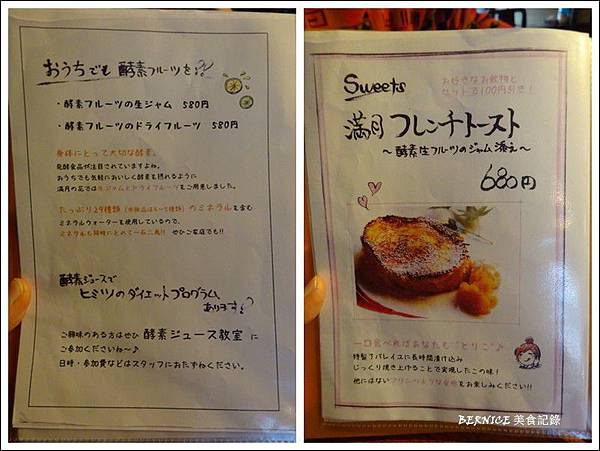 おうちでも 酵素フルーツを!
・酵素フルーツの生ジャム 580円
・酵素フルーツのドライフルーツ 580円
身体にとって大切な酵素。
発酵食品が注目されていますよね。
おうちでも気軽においしく酵素を摂れるように
満月の花では生ジャムとドライフルーツをご用意しました。
たっぷり29種類 のミネラルを含む
ミネラルウォーターを使用しているので、
ミネラルも同時にとれて一石二鳥!! ぜひご家庭でも!!
酵素ジュースで
ヒミツのダイエットプログラム、
あります
ご興味のある方はぜひ 酵素ジュース教室 に
ご参加くださいね～♪
日時・参加費などはスタッフにおたずねください。
Sweets
お好きなお飲物と
セットで100円引き!
満月 フレンチトースト
～酵素生フルーツのジャム添え～
680円
一口食べればあなたも "とりこ"♪
特製アパレイユに長時間漬け込み
じっくり焼き上げることで実現したこの味!
他にはないプリンのような食感をお楽しみください!!
BERNICE 美食記錄